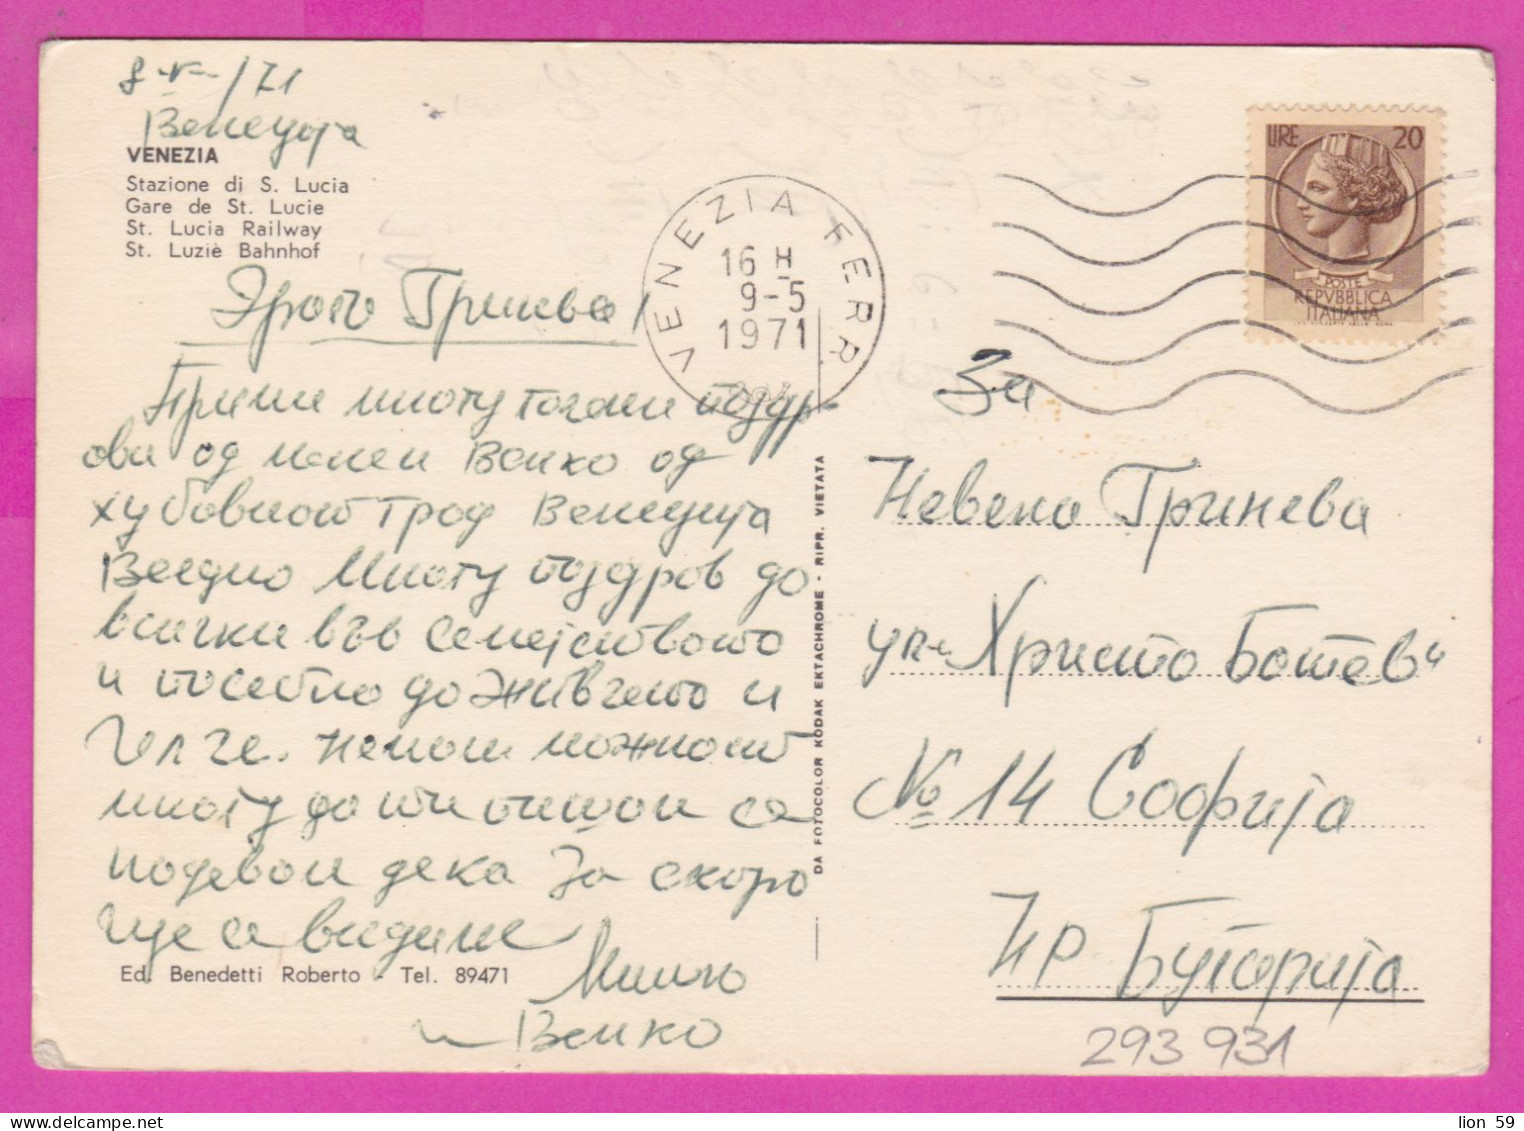 8-V-/71
Венеција
VENEZIA
Stazione di S. Lucia
Gare de St. Lucie
St. Lucia Railway
St. Luziè Bahnhof
Драга Гринева!
Прими многу топли поздр-
ови од мене и Венко од
хубавиот град Венеција
Воедно многу поздрав до
всички във семејството
и посебно до Живчето и
немам можност
многу да ти пишам се
надевам дека за скоро
ще се видиме
и Венко
Ed. Benedetti Roberto - Tel. 89471
DA FOTOCOLOR KODAK EKTACHROME - RIPR. VIETATA
VENEZIA FERR
16 H
9-5
1971
LIRE 20
POSTE
REPVBBLICA
ITALIANA
За
Невена Гринева
ул. "Христо Ботев"
№ 14 Софија
НР Бугарија
293 931
lion 59